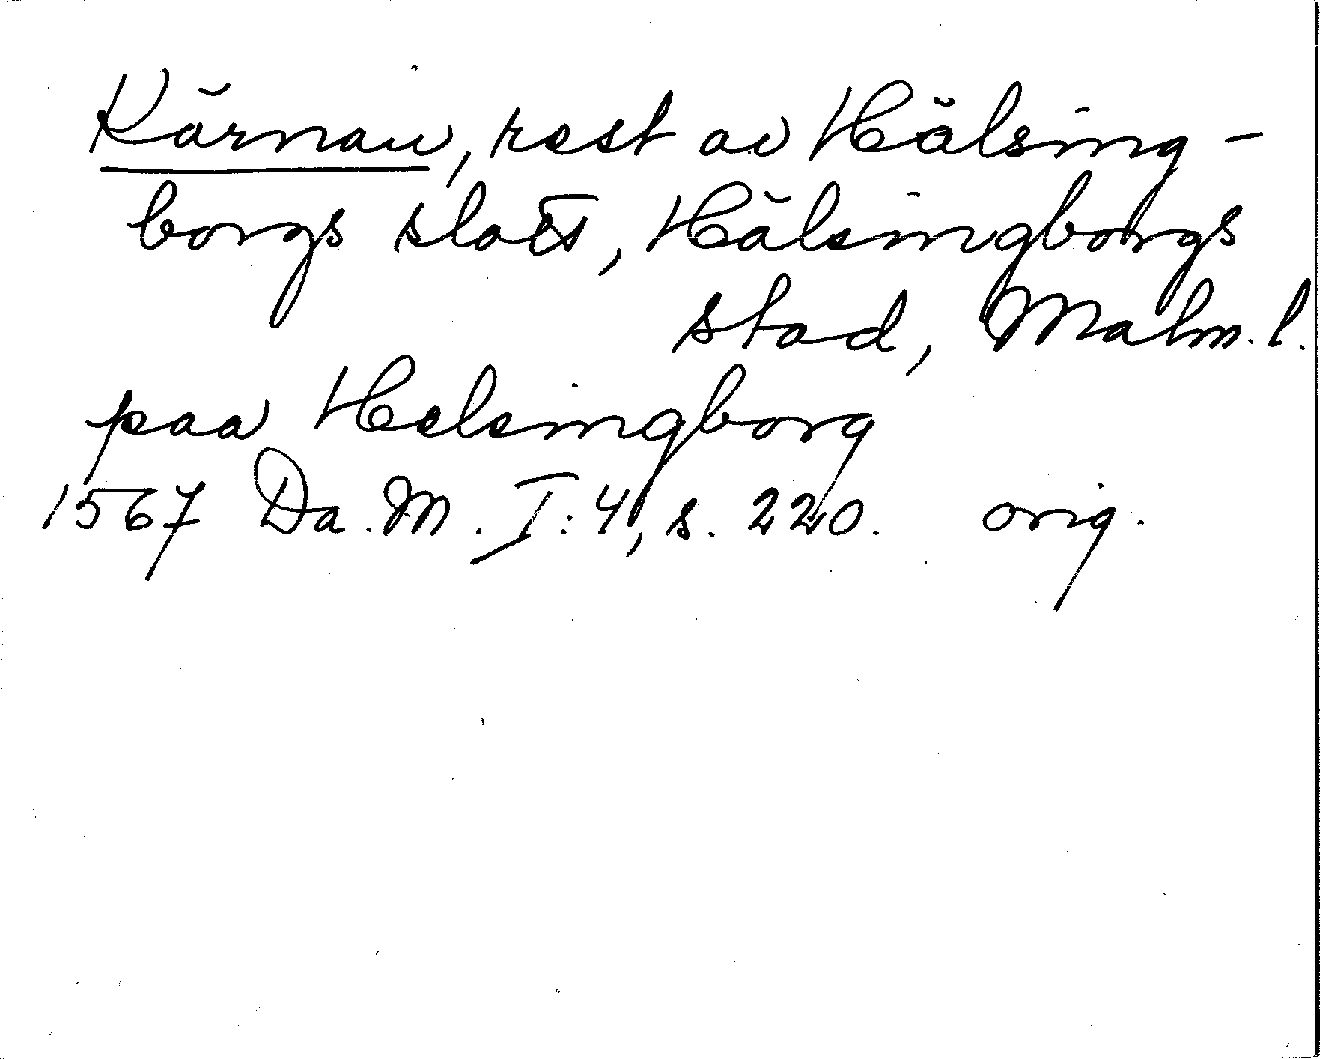 Kärnan, rest av Hälsing-
borgs slott, Hälsingborgs
stad, Malm. l.
paa Helsingborg
1567 Da. M. I:4, s. 220. orig.